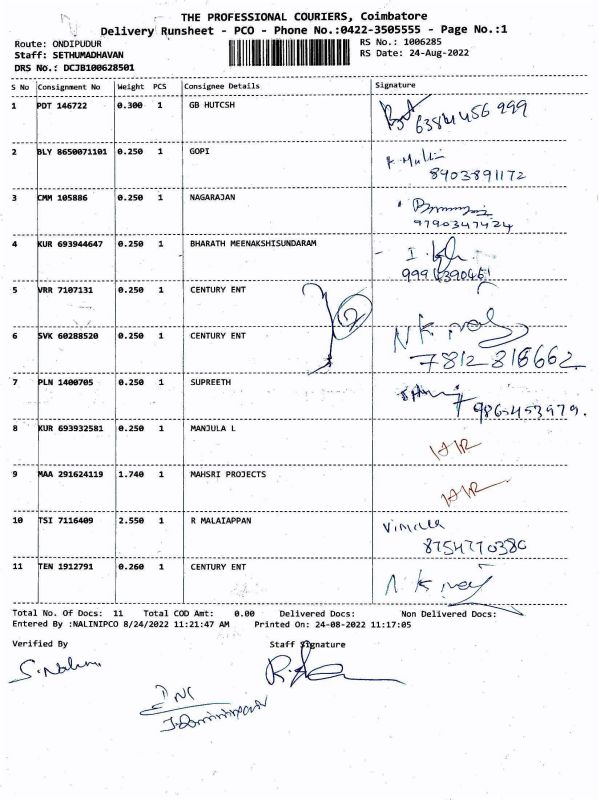 THE PROFESSIONAL COURIERS, Coimbatore
Delivery Runsheet - PCO - Phone No.:0422-3505555 - Page No.:1
Route: ONDIPUDUR RS No.: 1006285
Staff: SETHUMADHAVAN RS Date: 24-Aug-2022
DRS No.: DCJB100628501
S No Consignment No Weight PCS Consignee Details Signature
1 PDT 146722 0.300 1 GB HUTCSH
2 BLY 8650071101 0.250 1 GOPI
8903891172
3 CMM 105886 0.250 1 NAGARAJAN
9790347424
4 KUR 693944647 0.250 1 BHARATH MEENAKSHISUNDARAM
5 VRR 7107131 0.250 1 CENTURY ENT
2
6 SVK 60288520 0.250 1 CENTURY ENT
7812818662
7 PLN 1400705 0.250 1 SUPREETH
8 KUR 693932581 0.250 1 MANJULA L
9 MAA 291624119 1.740 1 MAHSRI PROJECTS
10 TSI 7116409 2.550 1 R MALAIAPPAN
8754770380
11 TEN 1912791 0.260 1 CENTURY ENT
Total No. Of Docs: 11 Total COD Amt: 0.00 Delivered Docs: Non Delivered Docs:
Entered By :NALINIPCO 8/24/2022 11:21:47 AM Printed On: 24-08-2022 11:17:05
Verified By Staff Signature
S.Nalini